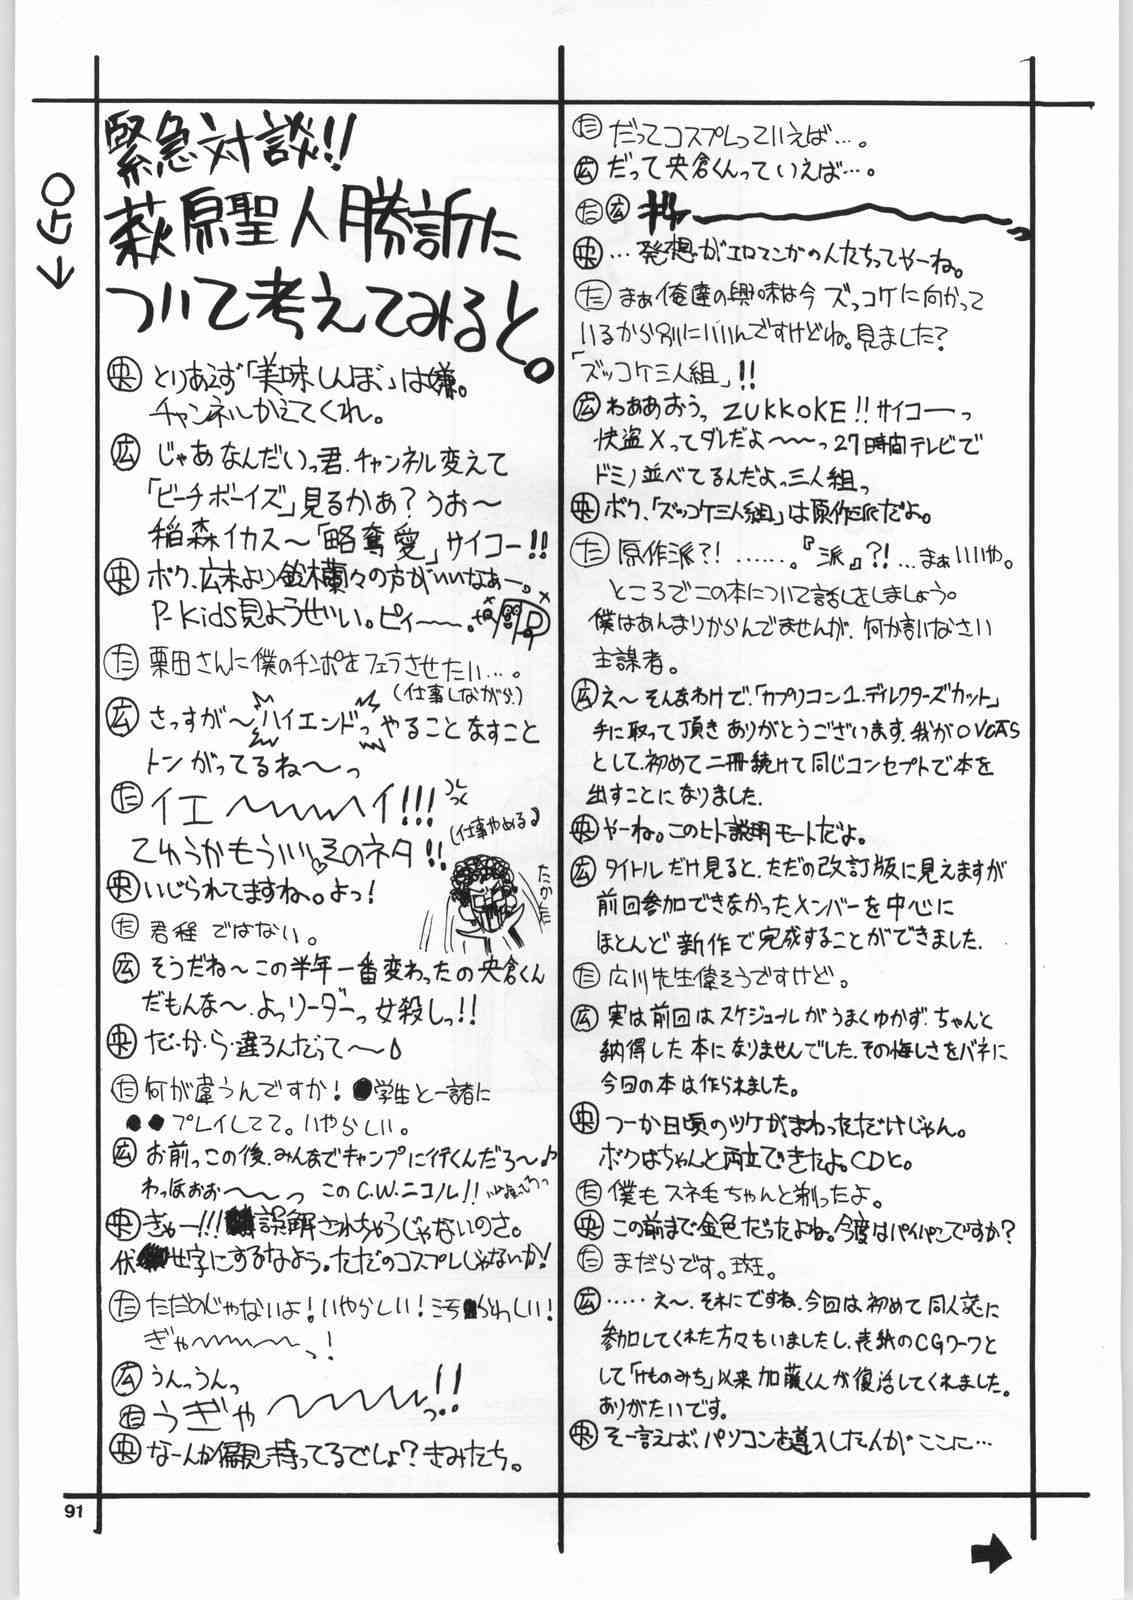 緊急対談!!
萩原聖人勝訴に
ついて考えてみると。
央 とりあえず「美味しんぼ」は嫌。
チャンネルかえてくれ。
広 じゃあなんだいっ君、チャンネル変えて
「ビーチボーイズ」見るかあ？うお〜
稲森イカス〜「略奪愛」サイコー!!
央 ボク、広末より鈴木蘭々の方がいいなぁー。
P-Kids見ようぜい。ピィ〜〜。
た 栗田さんに僕のチンポをフェラさせたい…。
(仕事しながら)
広 さっすが〜ハイエンドっやることなすこと
トンがってるね〜っ
た イエ〜〜〜イ!!!
てゆうかもういいそのネタ!!
(仕事やめる♪)
央 いじられてますね。よっ！
た 君程ではない。
広 そうだね〜この半年一番変わったの央倉くん
だもんな〜、よっリーダーっ女殺しっ!!
央 だ・か・ら・違うんだって〜♪
た 何が違うんですか！●学生と一諸に
●●プレイしてて。いやらしい。
広 お前っこの後、みんなでキャンプに行くんだろ〜♪
わっほぉぉ〜〜っ このC.W.ニコル!!
央 ぎゃー!!!誤解されちゃうじゃないのさ。
伏せ字にするなよう。ただのコスプレじゃないか！
た ただのじゃないよ！いやらしい！
ぎゃ〜〜〜っ！
広 うんっうんっ
た うぎゃ〜〜〜っ!!
央 なーんか偏見持ってるでしょ？きみたち。
た だってコスプレっていえば…。
広 だって央倉くんっていえば…。
た 広
央 …発想がエロマンガの人たちってやーね。
た まぁ俺達の興味は今ズッコケに向かって
いるから別にいいんですけどね。見ました？
「ズッコケ三人組」!!
広 わああおうっ ZUKKOKE!!サイコーっ
快盗Xってダレだよ〜〜っ27時間テレビで
ドミノ並べてるんだよっ三人組っ
央 ボク、「ズッコケ三人組」は原作派だよ。
た 原作派?!……。『派』?!…まぁいいや。
ところでこの本について話しをしましょう。
僕はあんまりからんでませんが、何か言いなさい
主謀者。
広 え〜そんなわけで、「カプリコン1.ディレクターズカット」
手に取って頂きありがとうございます、我がOVCATS
として、初めて二冊続けて同じコンセプトで本を
出すことになりました.
央 やーね。このヒト説明モードだよ。
広 タイトルだけ見ると、ただの改訂版に見えますが
前回参加できなかったメンバーを中心に
ほとんど新作で完成することができました.
た 広川先生偉そうですけど。
広 実は前回はスケジュールがうまくゆかず、ちゃんと
納得した本になりませんでした、その悔しさをバネに
今回の本は作られました。
央 つーか日頃のツケがまわっただけじゃん。
ボクはちゃんと両立できたよ。CDと。
た 僕もスネ毛ちゃんと剃ったよ。
央 この前まで金色だったよね。今度はパイパンですか？
た まだらです。斑。
広 ……え〜、それにですね、今回は初めて同人誌に
参加してくれた方々もいましたし、表紙のCGワークと
して「けものみち」以来加藤くんが復活してくれました。
ありがたいです。
央 そー言えば、パソコンを導入した人がここに…
91